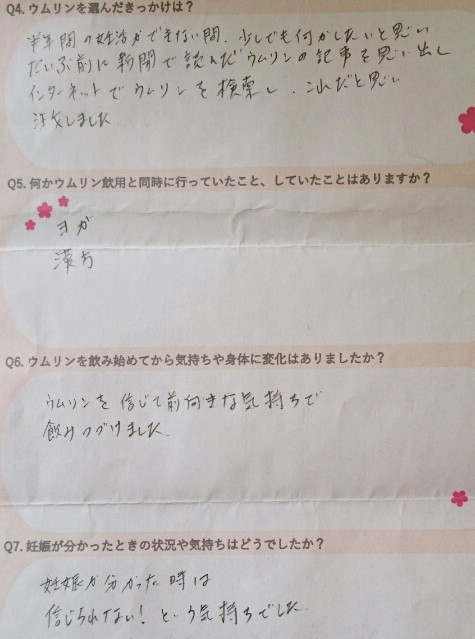 Q4.ウムリンを選んだきっかけは？
半年間の妊活ができない間、少しでも何かしたいと思い
だいぶ前に新聞で読んだウムリンの記事を思い出し
インターネットでウムリンを検索し、これだと思い
注文しました
Q5.何かウムリン飲用と同時に行っていたこと、していたことはありますか？
ヨガ
漢方
Q6.ウムリンを飲み始めてから気持ちや身体に変化はありましたか？
ウムリンを信じて前向きな気持ちで
飲みつづけました
Q7.妊娠が分かったときの状況や気持ちはどうでしたか？
妊娠が分かった時は
信じられない！という気持ちでした